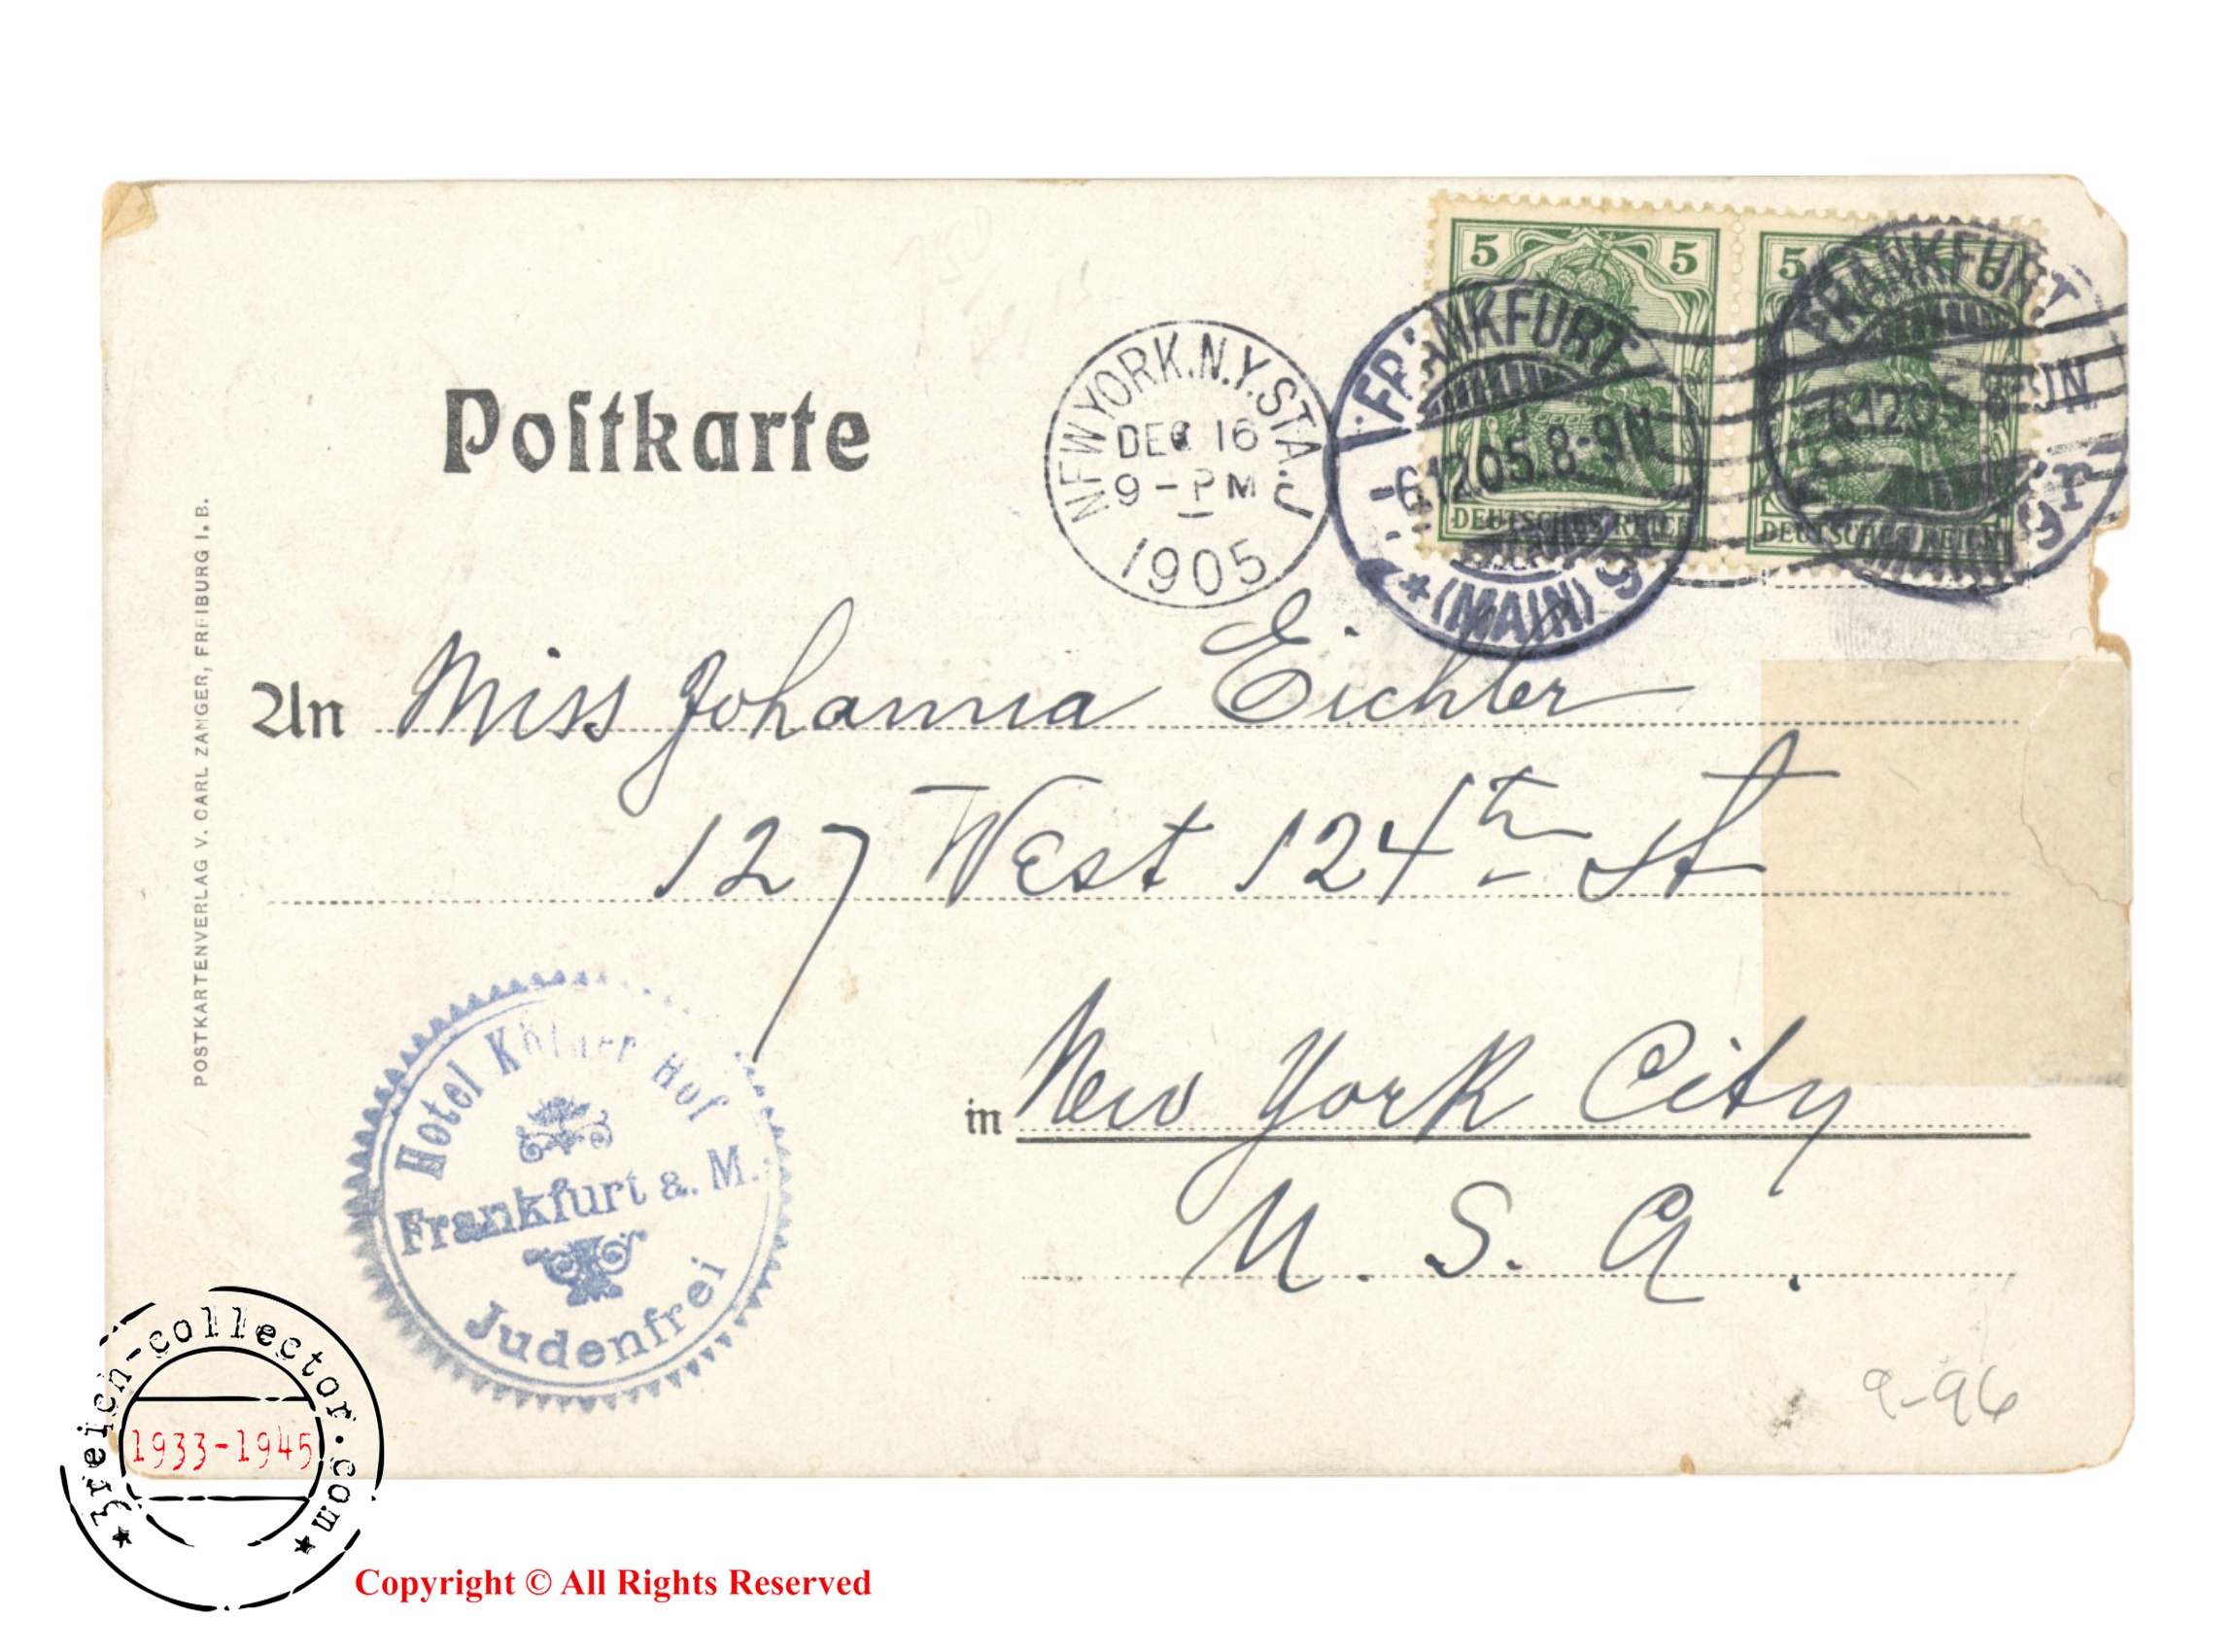 5 5
5 5
DEUTSCHES REICH
DEUTSCHES REICH
FRANKFURT
6.12.05.8-9N
★ (MAIN) 9
FRANKFURT
6.12.05
NEW YORK.N.Y.STA.J
DEC 16
9-PM
1905
Postkarte
An Miss Johanna Eichler
127 West 124th St
in New York City
U. S. A.
POSTKARTENVERLAG V. CARL ZANGER, FREIBURG I. B.
Hotel Kölner Hof
Frankfurt a. M.
Judenfrei
9-96
★ 3reich-collector.com ★
1933-1945
Copyright © All Rights Reserved